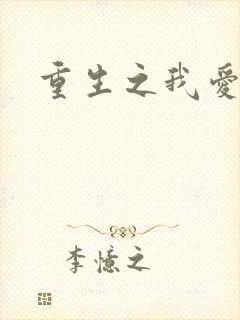 重生之我愛
李憶之